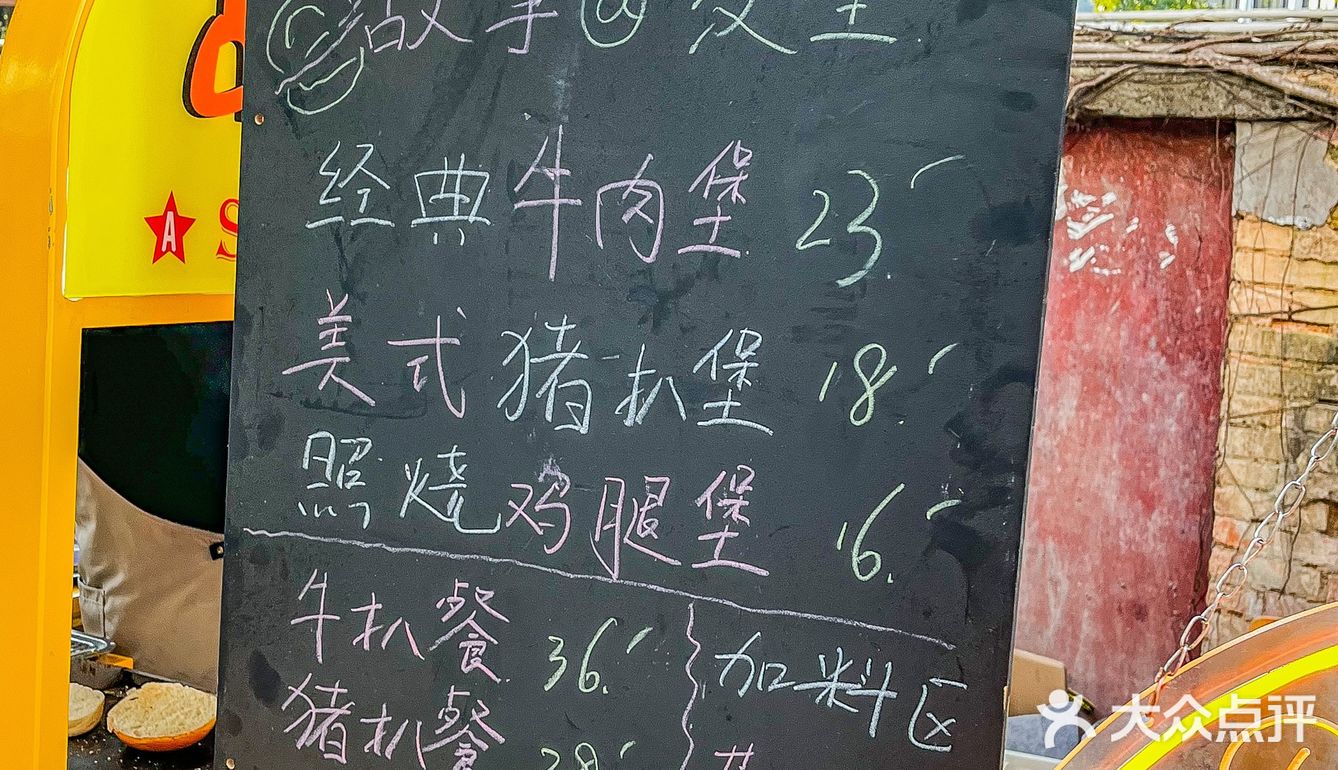 故事 发生
经典牛肉堡 23.
美式猪扒堡 18.
照烧鸡腿堡 16.
牛扒餐 36.
加料区
猪扒餐 28.
A S
大众点评